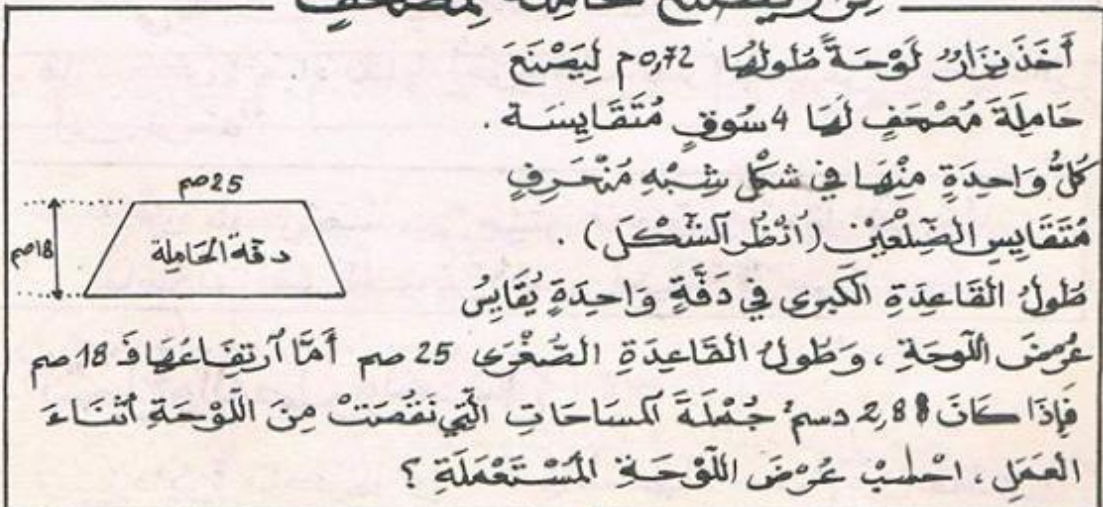 نزار يصنع حاملة لمصحف
أَخَذَ نِزَارُ لَوْحَةً طُولُهَا 0,72م لِيَصْنَعَ
حَامِلَةَ مُصْحَفٍ لَهَا 4 سُوقٍ مُتَقَايِسَة .
كُلُّ وَاحِدَةٍ مِنْهَا في شَكْلِ شِبْهِ مُنْحَرِفٍ
مُتَقَايِسِ الضِّلْعَيْنِ (اُنْظُرِ الشَّكْلَ) .
25صم
18صم
دفة الحاملة
طُولُ القَاعِدَةِ الكُبْرى في دَفَّةٍ وَاحِدَةٍ يُقَايِسُ
عُرْضَ اللَّوْحَةِ ، وَطُولُ القَاعِدَةِ الصُّغْرَى 25 صم أَمَّا اَرْتِفَاعُهَا فَـ 18 صم
فَإِذَا كَانَ 2,88 دسم² جُمْلَةَ المسَاحَاتِ الَّتِي نَقُصَتْ مِنَ اللَّوْحَةِ أَثْنَاءَ
العَمَلِ ، احْسُبْ عُرْضَ اللَّوْحَةِ المُسْتَعْمَلَةِ ؟